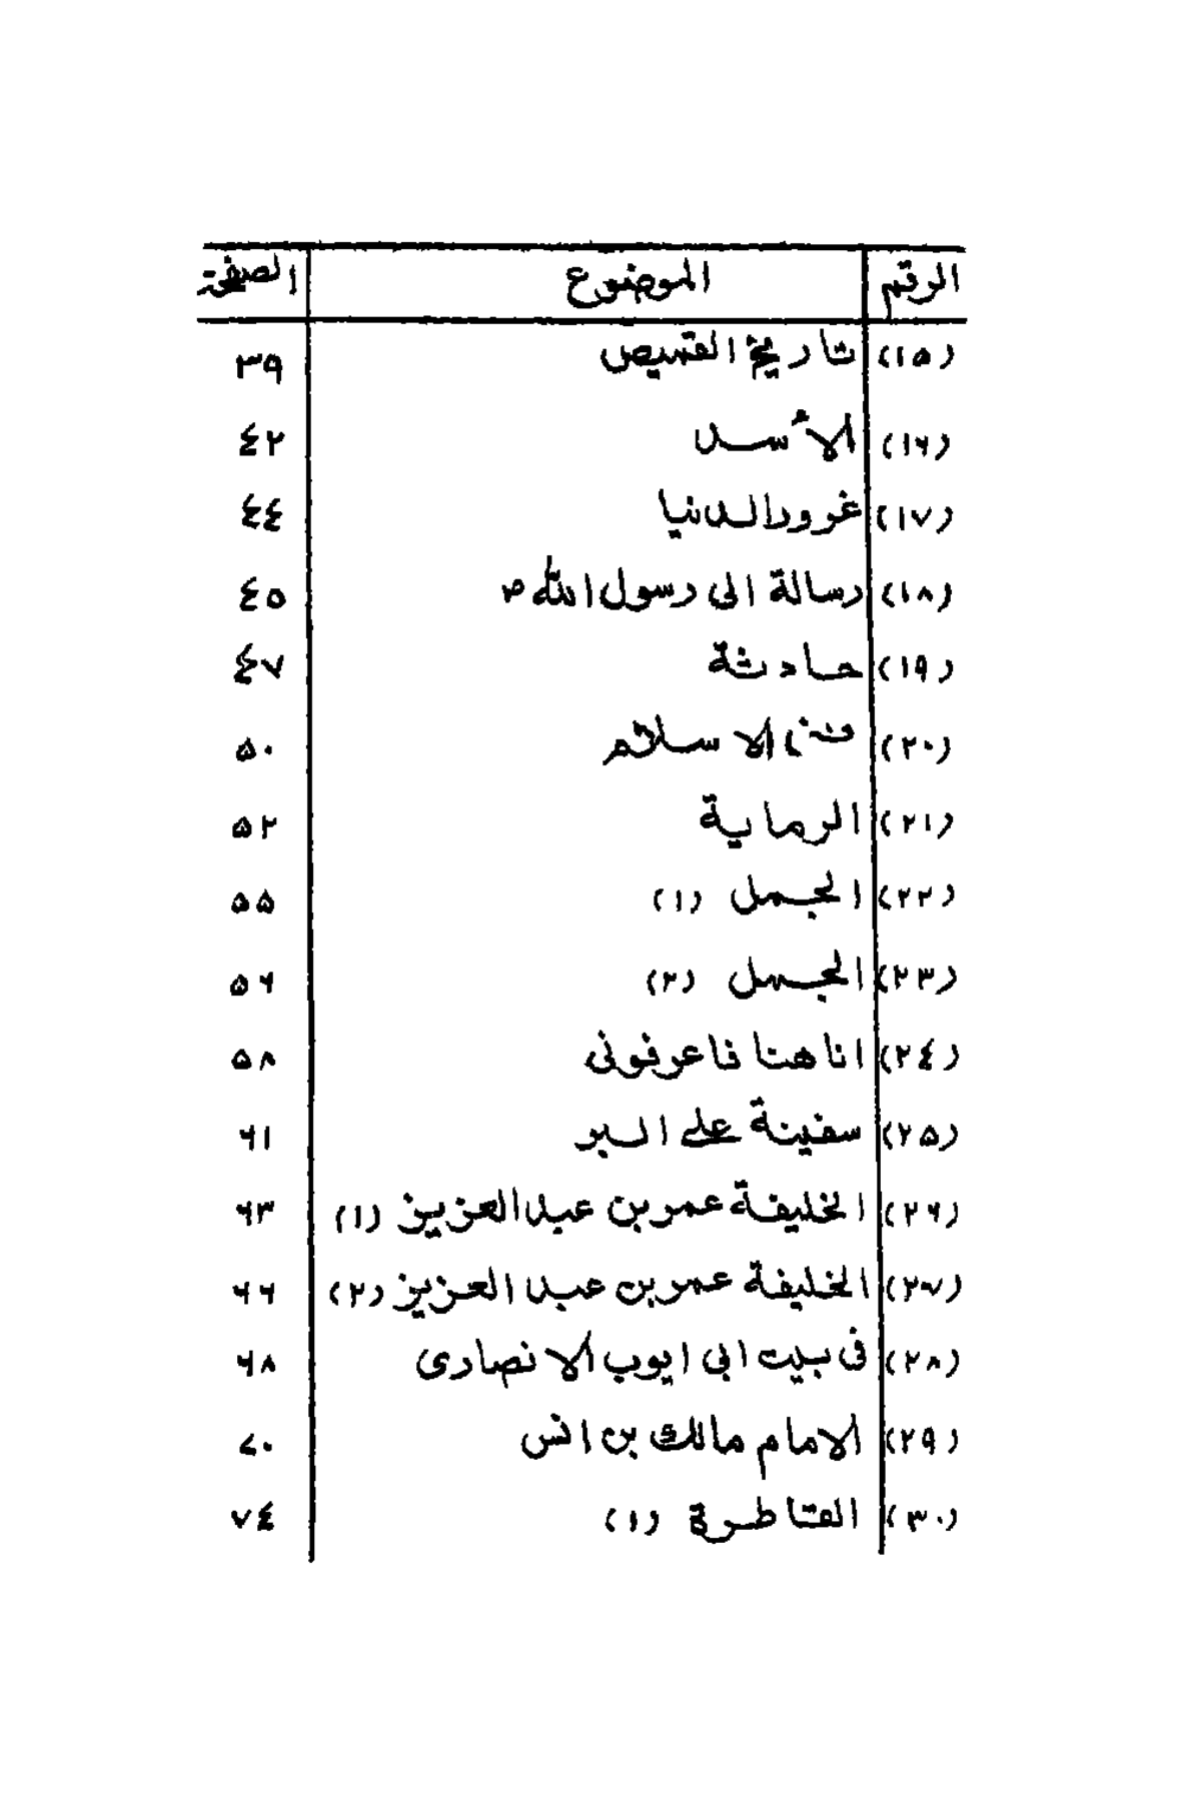 الرقم الموضوع الصفحة
(١٥) تاريخ القميص ٣٩
(١٦) الأسد ٤٢
(١٧) غرور الدنيا ٤٤
(١٨) رسالة الى رسول الله ص ٤٥
(١٩) حادثة ٤٧
(٢٠) فتى الاسلام ۵٠
(٢١) الرماية ۵٢
(٢٢) الجمل (١) ۵۵
(٢٣) الجمل (٢) ۵۶
(٢٤) انا هنا فاعرفونى ۵٨
(٢۵) سفينة على البر ۶١
(٢۶) الخليفة عمر بن عبد العزيز (١) ۶٣
(٢٧) الخليفة عمر بن عبد العزيز (٢) ۶۶
(٢٨) فى بيت ابى ايوب الانصارى ۶٨
(٢٩) الامام مالك بن انس ٧٠
(٣٠) القاطرة (١) ٧٤